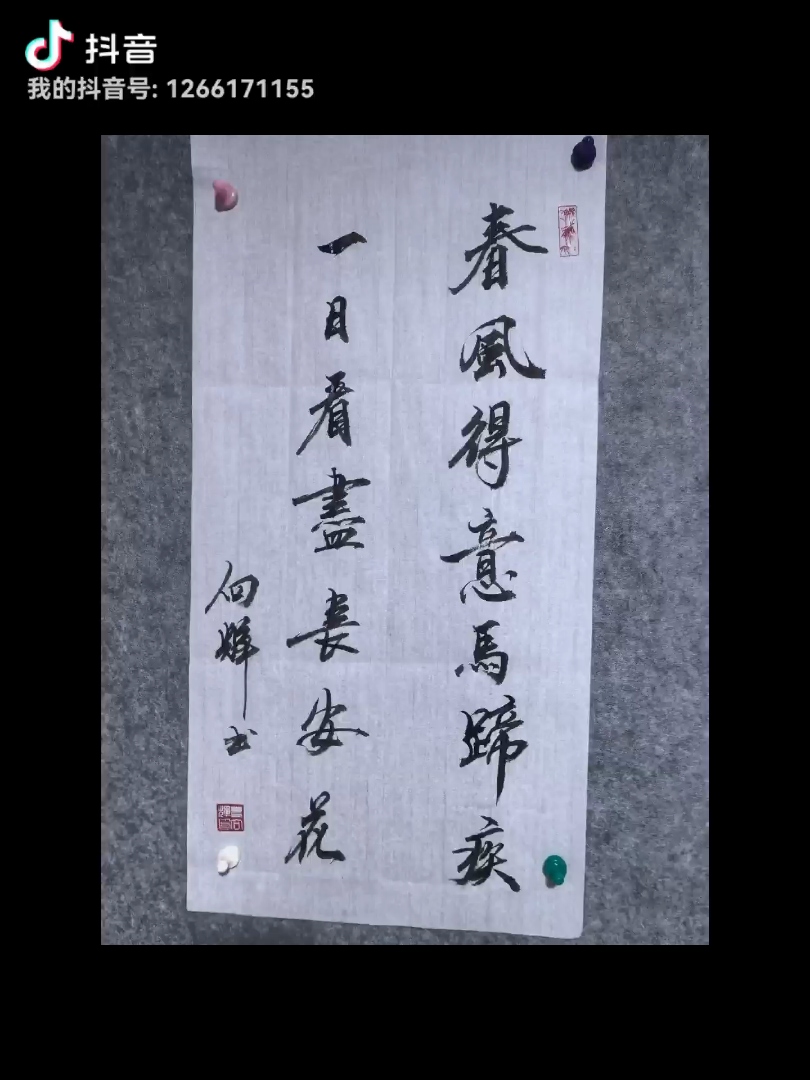 抖音
我的抖音号: 1266171155
春風得意馬蹄疾
一日看盡長安花
向輝书